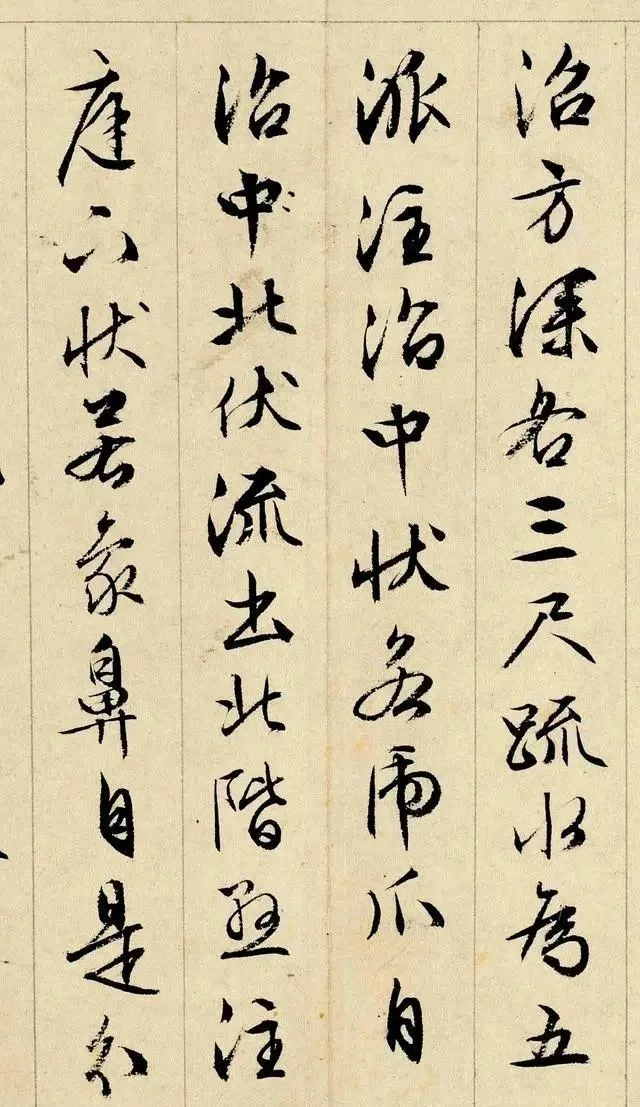 沼方深各三尺疏水為五
派注沼中狀若虎爪自
沼中北伏流出北階懸注
庭下狀若象鼻自是分